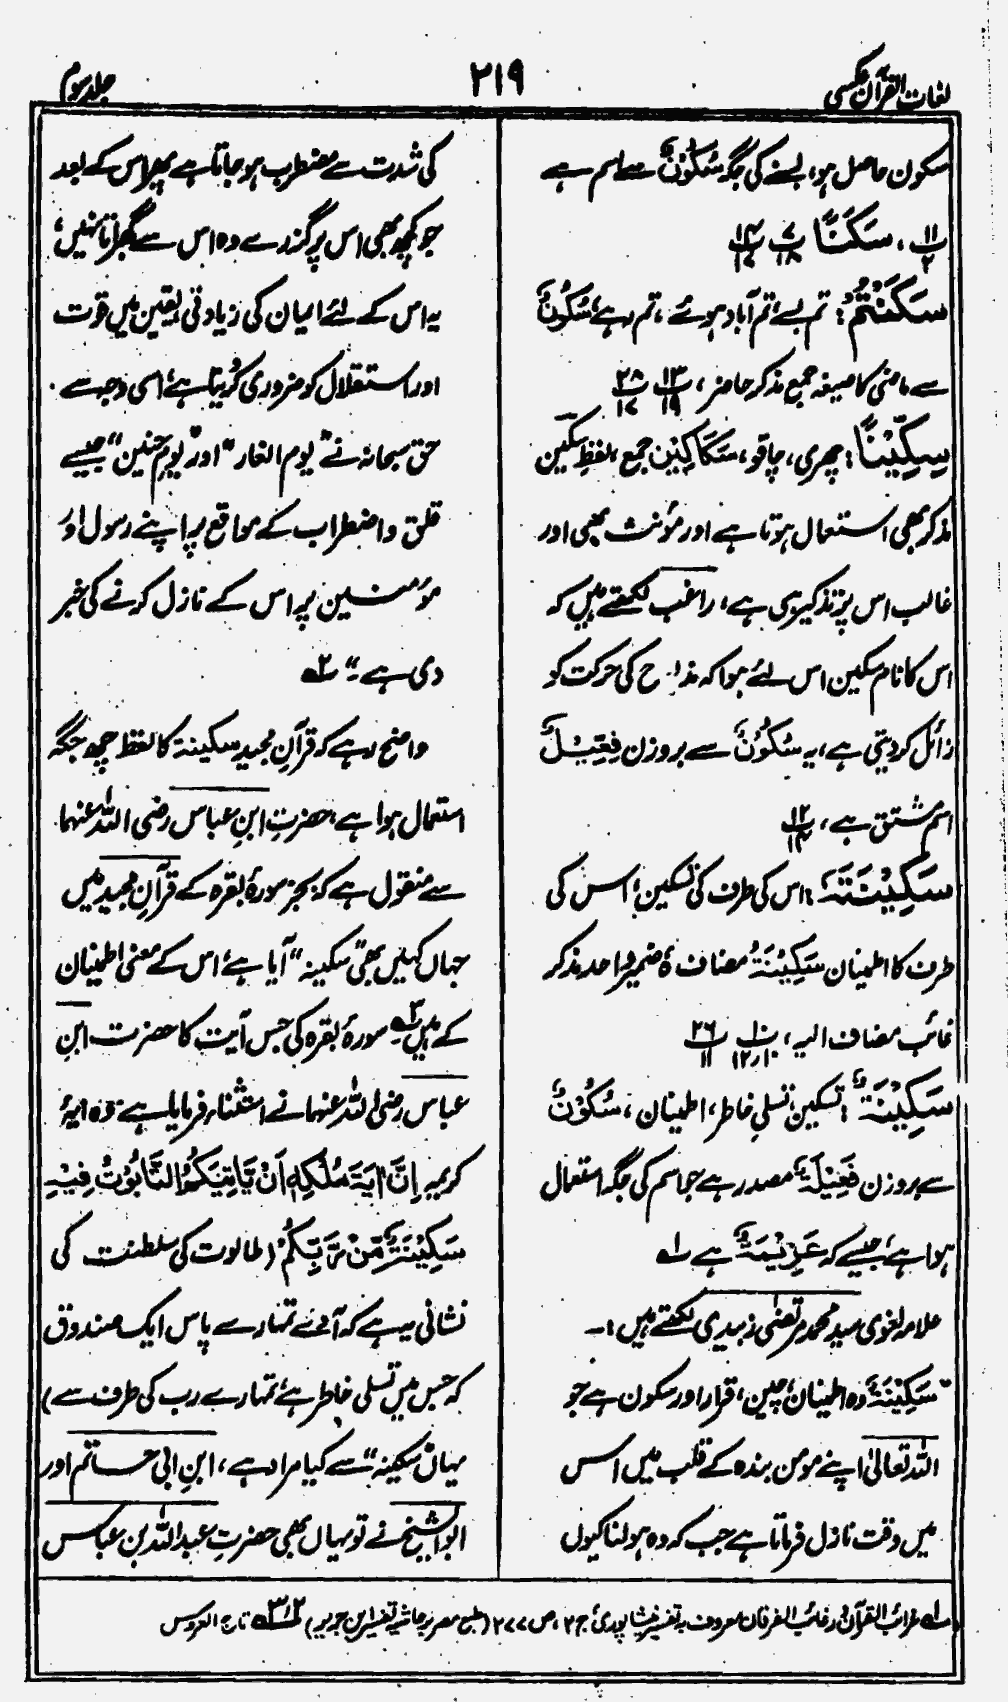 لغات القرآن عکسی
۲۱۹
جلد سوم
سکون حاصل ہو، بسنے کی جگہ سُکُوْنٌ سے اسم ہے
۱۱/۲ ، سَکَنًا ۷/۱۸ ۱۴/۱۷
سَکَنْتُمْ: تم بسے، تم آباد ہوئے، تم رہے، سُکُوْنٌ
سے ماضی کا صیغہ جمع مذکر حاضر، ۱۳/۱۹ ۲۸/۱۷
سِکِّیْنًا: چھری، چاقو، سَکَاکِیْن جمع، لفظِ سکین
مذکر بھی استعمال ہوتا ہے اور مؤنث بھی اور
غالب اس پر تذکیر ہی ہے، راغب لکھتے ہیں کہ
اس کا نام سکین اس لئے ہوا کہ مذبوح کی حرکت کو
زائل کر دیتی ہے، یہ سُکُوْنٌ سے بروزن فِعِّیْلٌ
اسم مشتق ہے، ۱۲/۱۴
سَکِیْنَتَہٗ: اس کی طرف کی تسکین، اس کی
طرف کا اطمینان سَکِیْنَۃُ مضاف ہٗ ضمیر واحد مذکر
غائب مضاف الیہ، ۱۰/۱۰،۱۲ ۲۶/۱۱
سَکِیْنَۃٌ: تسکین، تسلیِ خاطر، اطمینان، سُکُوْنٌ
سے بروزن فَعِیْلَۃٌ مصدر ہے جو اسم کی جگہ استعمال
ہوا ہے، جیسے کہ عَزِیْمَۃٌ ہے ۱ھ
علامہ لغوی سید محمد مرتضی زبیدی لکھتے ہیں:۔
"سَکِیْنَۃٌ وہ اطمینان، چین، قرار اور سکون ہے جو
اللہ تعالیٰ اپنے مومن بندہ کے قلب میں اس
میں وقت نازل فرماتا ہے جب کہ وہ ہولناکیوں
کی شدت سے مضطرب ہو جاتا ہے پھر اس کے بعد
جو کچھ بھی اس پر گزرے وہ اس سے گھبراتا نہیں،
یہ اس کے لئے ایمان کی زیادتی یقین میں قوت
اور استقلال کو ضروری کر دیتا ہے، اسی وجہ سے
حق سبحانہ نے "یوم الغار" اور "یوم حنین" جیسے
قلق واضطراب کے مواقع پر اپنے رسول اور
مومنین پر اس کے نازل کرنے کی خبر
دی ہے۔" ۲ھ
واضح رہے کہ قرآن مجید سکینۃ کا لفظ چھ جگہ
استعمال ہوا ہے، حضرت ابنِ عباس رضی اللہ عنہما
سے منقول ہے کہ بجز سورۂ بقرہ کے قرآنِ مجید میں
جہاں کہیں بھی "سکینہ" آیا ہے، اس کے معنی اطمینان
کے ہیں ۳ھ سورۂ بقرہ کی جس آیت کا حضرت ابن
عباس رضی اللہ عنہما نے استثناء فرمایا ہے وہ آیۂ
کریمہ اِنَّ اٰیَۃَ مُلْکِہٖ اَنْ یَّاْتِیَکُمُ التَّابُوْتُ فِیْہِ
سَکِیْنَۃٌ مِّنْ رَّبِّکُمْ (طالوت کی سلطنت کی
نشانی یہ ہے کہ آوے تمہارے پاس ایک صندوق
کہ جس میں تسلی خاطر ہے، تمہارے رب کی طرف سے)
یہاں "سکینہ" سے کیا مراد ہے، ابنِ ابی حاتم اور
ابوالشیخ نے تو یہاں بھی حضرت عبداللہ بن عباس
۱ھ غرائب القرآن ورغائب الفرقان معروف بہ تفسیر نیشاپوری، ج ۳، ص ۲۷۷ (طبع مصر برحاشیہ تفسیر ابن جریر) ۲ھ ۳ھ تاج العروس